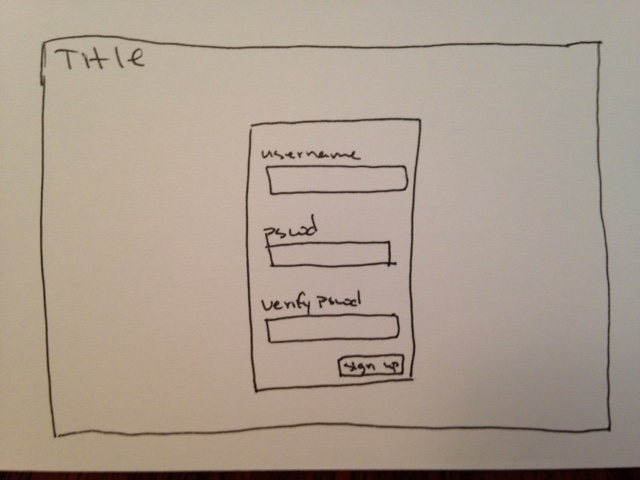 Title
username
pswd
verify pswd
sign up